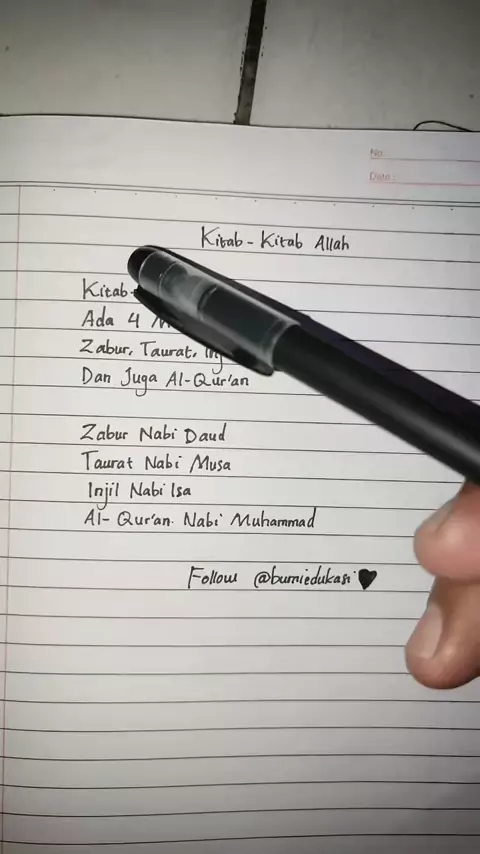 No
Date:
Kitab - Kitab Allah
Kitab-
Ada 4
Zabur, Taurat, Inj
Dan Juga Al-Qur'an
Zabur Nabi Daud
Taurat Nabi Musa
Injil Nabi Isa
Al- Qur'an. Nabi Muhammad
Follow @bumiedukasi